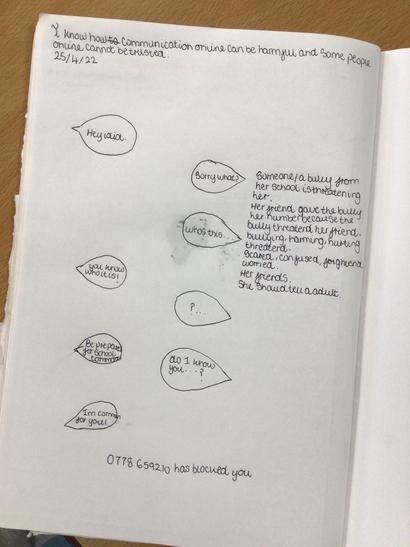 I know how to communication online can be harmful and some people
online cannot be trusted.
25/4/22
Hey idiot.
Sorry what?
Someone/a bully from
her school is threatening
her.
Her friend gave the bully
her number because the
bully threaterd her friend.
bullying, harming, hurting
threaterd.
Scared, confused, forghtend
worried.
Her friends.
She should tell a adult.
whos this...
you know
who it is!
?...
Be prepared
for school
do I know
you....?
Im comin
for you!
0778 659210 has blocked you